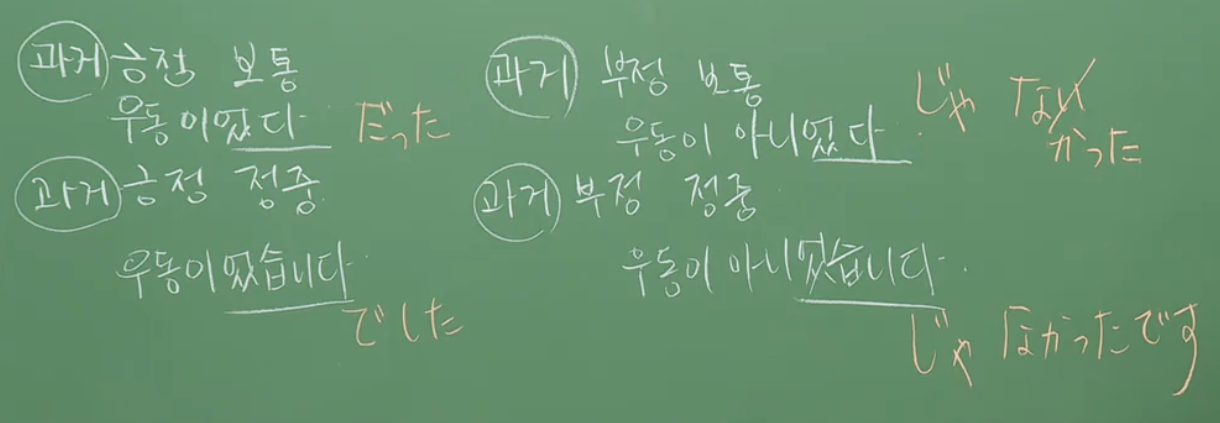 과거 긍정 보통
우동이었다 だった
과거 긍정 정중
우동이었습니다 でした
과거 부정 보통
우동이 아니었다 じゃ ない
かった
과거 부정 정중
우동이 아니었습니다.
じゃ なかったです